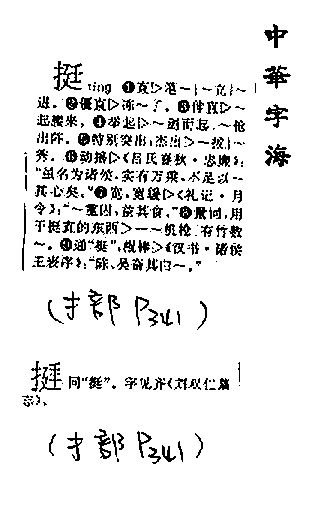 中華字海
挺 tǐng ❶直▷笔~|~立|~
进。❷僵直▷ ~了。❸伸直▷~
起腰来。❹举起▷~剑而起。
出阵。❺特别突出;杰出▷~拔|~
秀。❻动摇▷《吕氏春秋·忠廉》:
“虽名为诸侯,实有万乘,不足以
其心矣。”❼宽,宽缓▷《礼记·月
令》:“~重囚,益其食。”❽量词,用
于挺直的东西▷一~机枪|有竹数
~。
王表序》:“陈、吴奋其白~。”
(扌部 P341)
挺 同“挺”。字见齐《刘双仁墓
志》。
(扌部 P341)